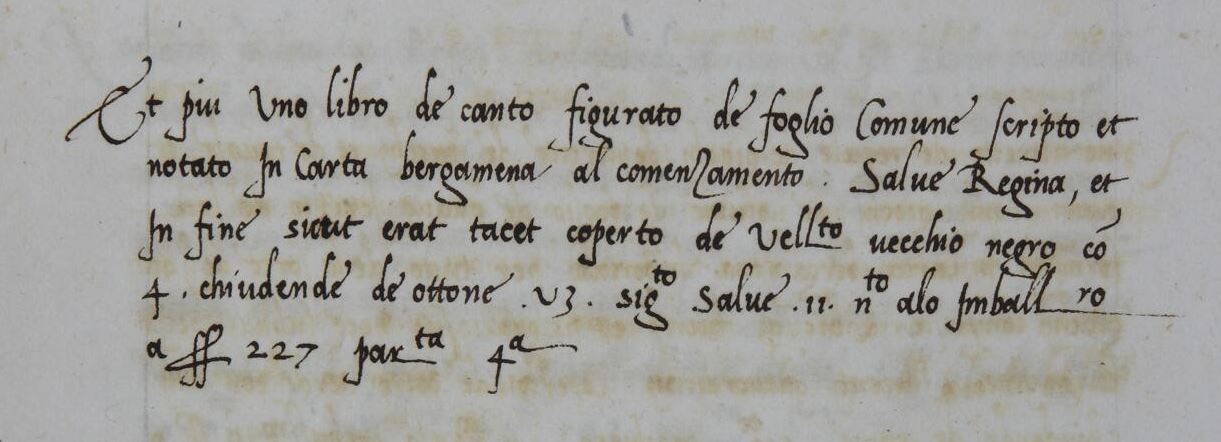 Et piu Uno libro de canto figurato de foglio Comune scripto et
notato In Carta bergamena al comenzamento . Salue Regina, et
In fine sicut erat tacet coperto de Vell^to uecchio negro cõ
4 . chiudende de ottone . V3 . sig^to Salue . 11 . n^to alo Imball^ro
a ff 227 par^ta 4^a